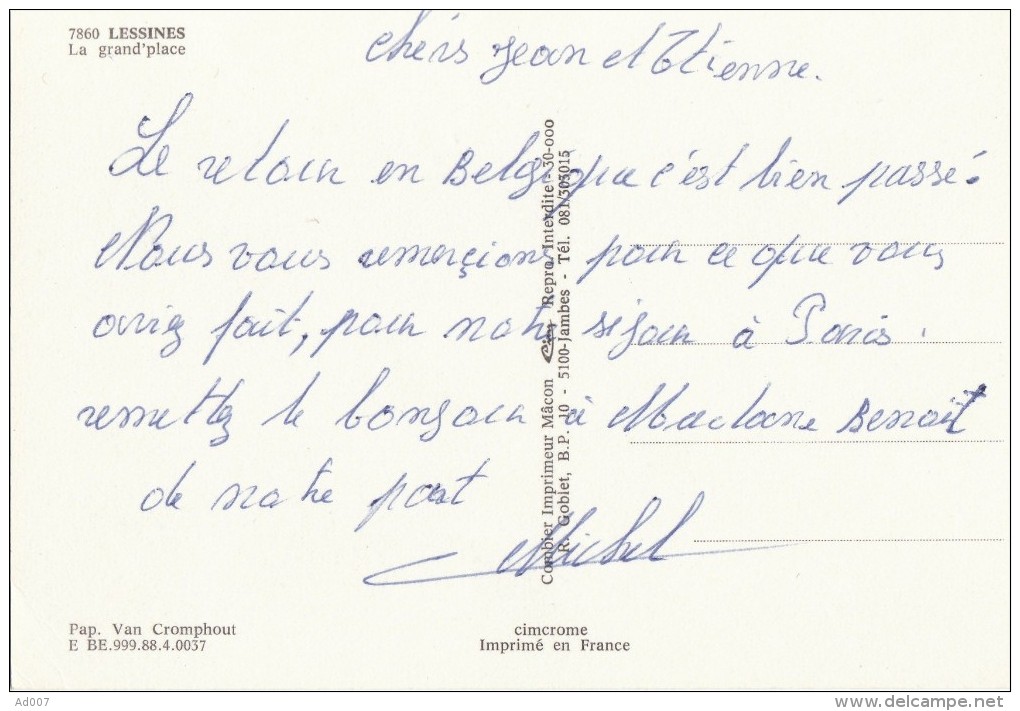 7860 LESSINES
La grand'place
Chérs Jean et Etienne.
Le retour en Belgique c'est bien passé.
Nous vous remerçions pour ce que vous
aviez fait, pour notre séjour à Paris.
remettez le bonjour à Madame Benoit
de notre part
Michel
Combier Imprimeur Mâcon Cim Repro. Interdite - 30-000
R. Goblet, B.P. 10 - 5100-Jambes - Tél. 081/303015
Pap. Van Cromphout
E BE.999.88.4.0037
cimcrome
Imprimé en France
Ad007
www.delcampe.net